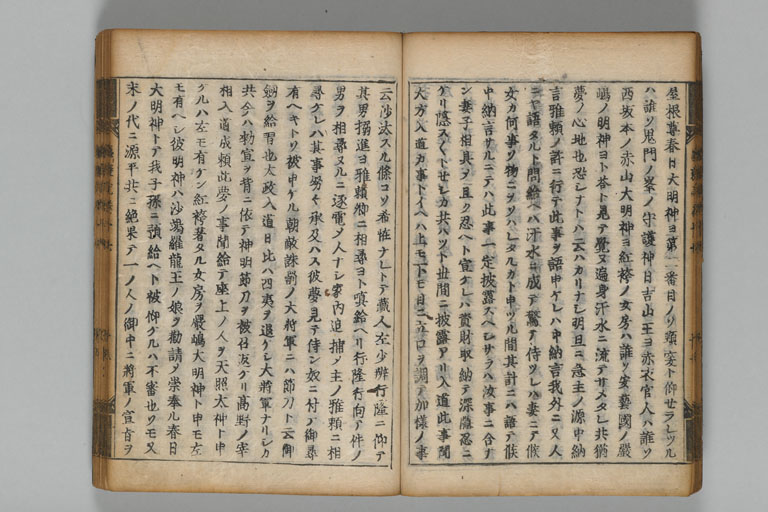 屋根尊春日大明神ヨ第二番目ノリ頼宴ト仰セラレツル
ハ誰ソ鬼門ノ峯ノ守護神日吉山王ヨ赤衣官人ハ誰ソ
西坂本ノ赤山大明神ヨ紅袴ノ女房ハ誰ソ安藝國ノ嚴
嶋ノ明神ヨト答ト見テ覺ヌ遍身汗水ニ流テサメタレ共猶
夢ノ心地也恐シナト云ハカリナシ明旦ニ急主ノ源中納
言雅頼ノ許ニ行テ此事ヲ語申ケレハ中納言我外ニ又人
ニヤ語タルト問給ヘハ汗水ニ成テ驚テ侍ツレハ妻ニテ候
女カ何事ソ物ニヲソハレタルカト申ツル間其計ニハ語テ候
中納言サルニテハ此事一定披露スヘシサラハ汝事ニ合ナ
ン妻子相具ヲ且ク忍ヘト宣ケレハ資財取納テ深隠忍ニ
ケリ隱スくトセシカ共ハツト世間ニ披露アリ入道此事聞
大方入道カ事トイヘハ上モ下モ目ニ立口ヲ調テ加様ノ事
云沙汰スル條コソ希恠ナレトテ藏人左少辨行隆ニ仰テ
其男搦進ヨ雅頼卿ニ相尋ヨト嗔給ヘリ行隆行向テ件ノ
男ヲ相尋ヌルニ逐電メ人ナシ家内追捕メ主ノ雅頼ニ相
尋ケレハ其事努々承及ハス彼夢見テ侍シ奴ニ付テ御尋
有ヘキトソ被申ケル朝敵誅罰ノ大將軍ニハ節刀ト云御
劔ヲ給習也太政入道日比ハ四夷ヲ退ケシ大將軍ナリシカ
共今ハ勅宣ヲ背ニ依テ神明節刀ヲ被召返ケリ高野ノ宰
相入道成頼此夢ノ事聞給テ座上ノ人ヲ天照太神ト申
ケルハ左モ有ケン紅袴著タル女房ヲ嚴嶋大明神ト申モ左
モ有ヘシ彼明神ハ沙竭羅龍王ノ娘ヲ勸請メ崇奉ル春日
大明神トテ我子孫ニ預給ヘト被仰ケルハ不審也ヤモ又
末ノ代ニ源平共ニ絶果テ一ノ人ノ御中ニ將軍ノ宣旨ヲ